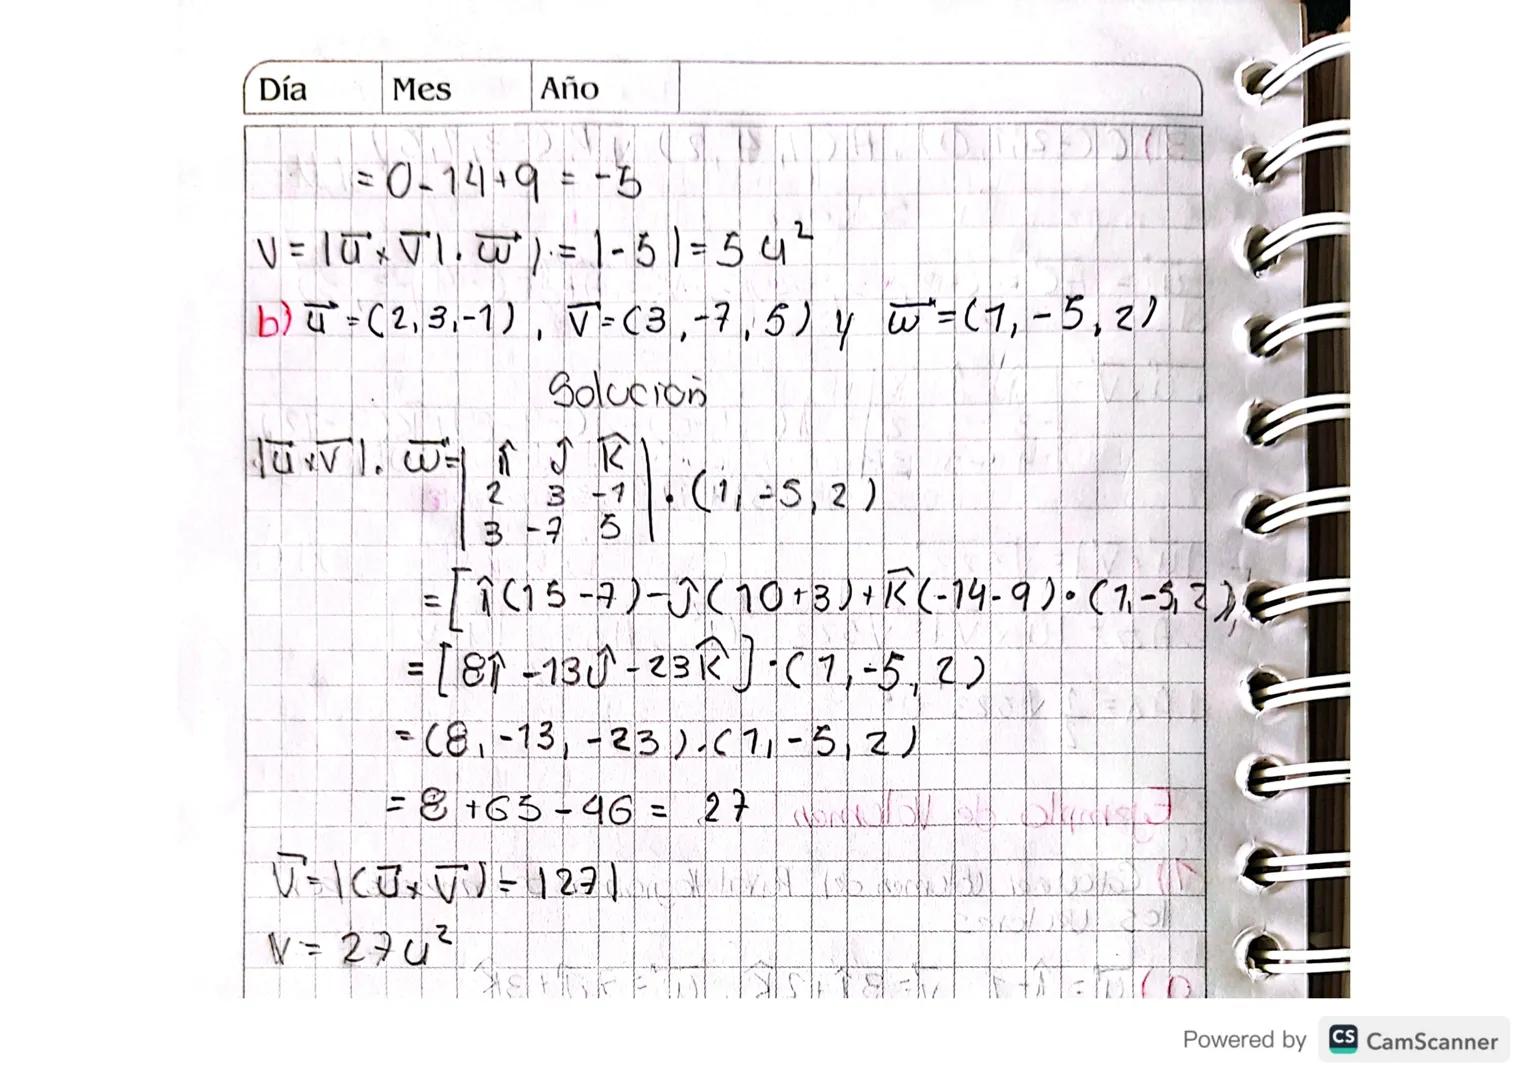 Día Mes Año
= 0-14+9 = -5
V = |u⃗ x v⃗|. w⃗). = |-5| = 5 u²
b) u⃗ = (2,3,-1), v⃗ = (3,-7,5) y w⃗ = (1,-5,2)
Solución
|u⃗ x v⃗|. w⃗ = | î ĵ k̂
2 3 -1 | . (1,-5,2)
3 -7 5
= [î(15-7)-ĵ(10+3)+k̂(-14-9)·(1,-5,2),
= [8î -13ĵ -23k̂]·(1,-5,2)
= (8,-13,-23).(1,-5,2)
= 8+65-46 = 27
V⃗ = |(u⃗ x v⃗) = |27|
V = 27u²
Powered by CS CamScanner